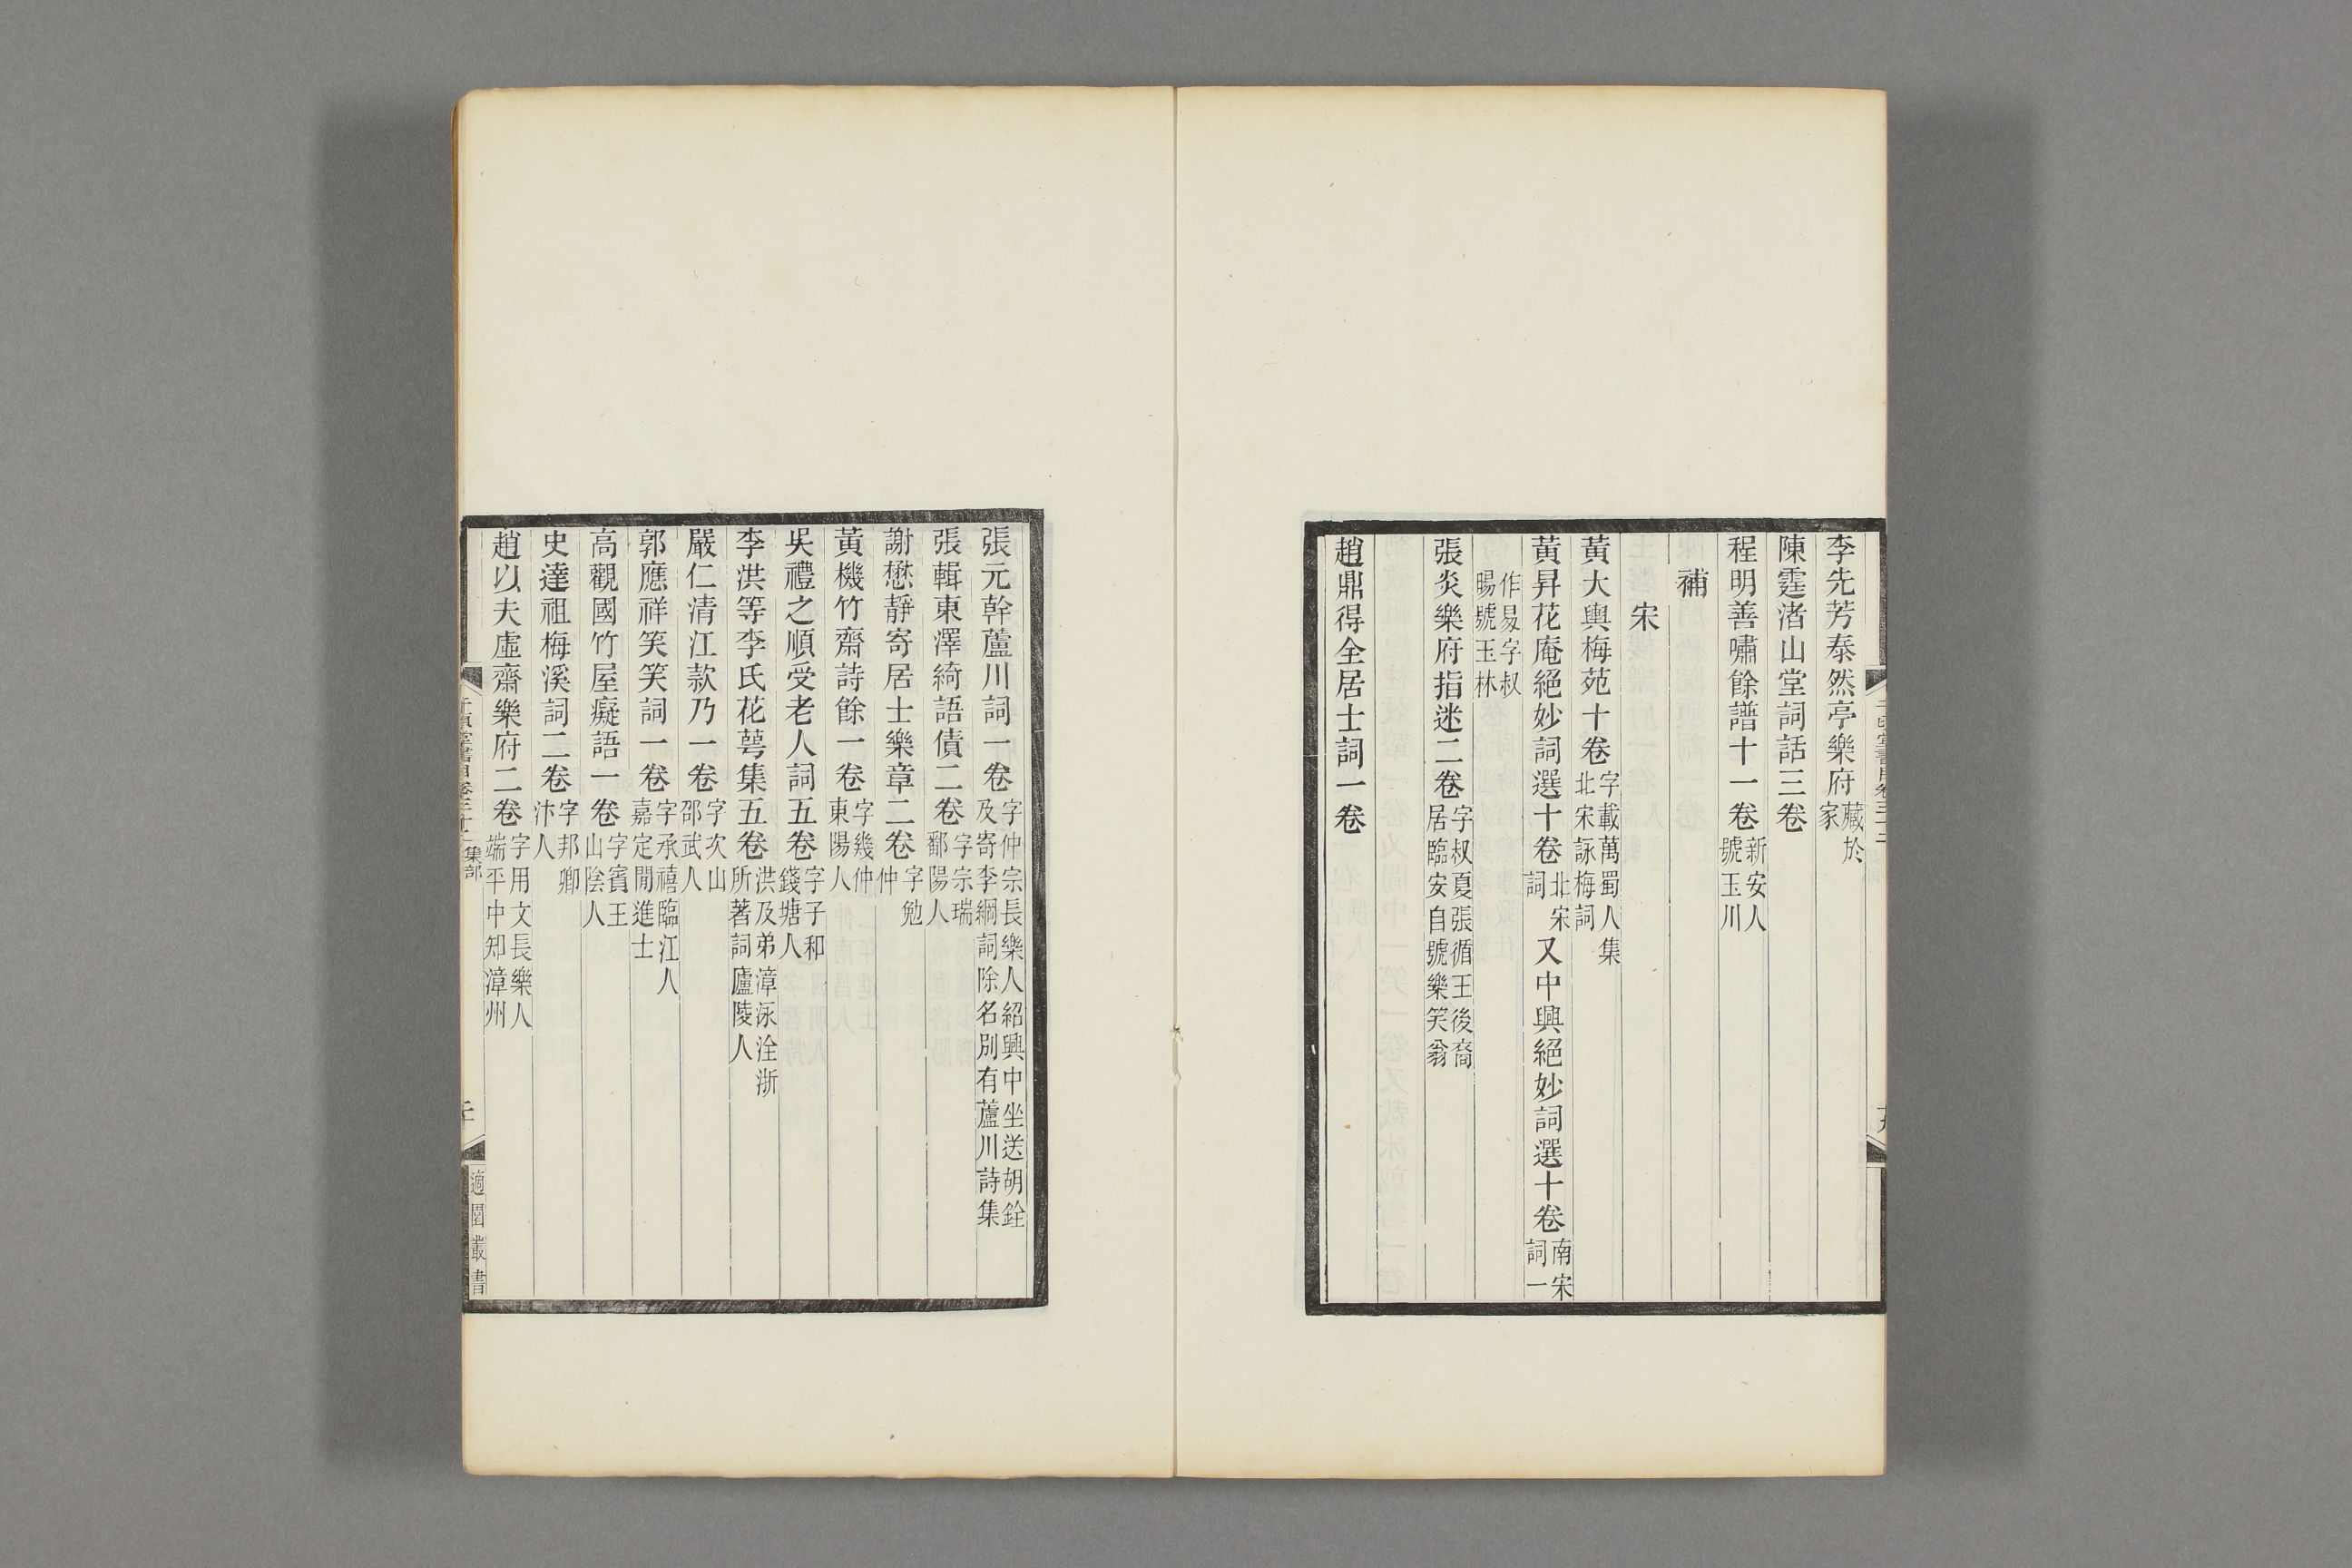 李先芳泰然亭樂府藏於家
陳霆渚山堂詞話三卷
程明善嘯餘譜十一卷新安人號玉川
補
宋
黃大輿梅苑十卷字載萬蜀人集北宋詠梅詞
黃昇花庵絕妙詞選十卷北宋詞又中興絕妙詞選十卷南宋詞一
作昜字叔暘號玉林
張炎樂府指迷二卷字叔夏張循王後裔居臨安自號樂笑翁
趙鼎得全居士詞一卷
張元幹蘆川詞一卷字仲宗長樂人紹興中坐送胡銓及寄李綱詞除名別有蘆川詩集
張輯東澤綺語債二卷字宗瑞鄱陽人
謝懋靜寄居士樂章二卷字勉仲
黃機竹齋詩餘一卷字幾仲東陽人
吳禮之順受老人詞五卷字子和錢塘人
李洪等李氏花萼集五卷洪及弟漳泳洤淅所著詞廬陵人
嚴仁清江款乃一卷字次山邵武人
郭應祥笑笑詞一卷字承禧臨江人嘉定閒進士
高觀國竹屋癡語一卷字賓王山陰人
史達祖梅溪詞二卷字邦卿汴人
趙以夫虛齋樂府二卷字用文長樂人端平中知漳州
千頃堂書目卷三十二 集部
適園叢書